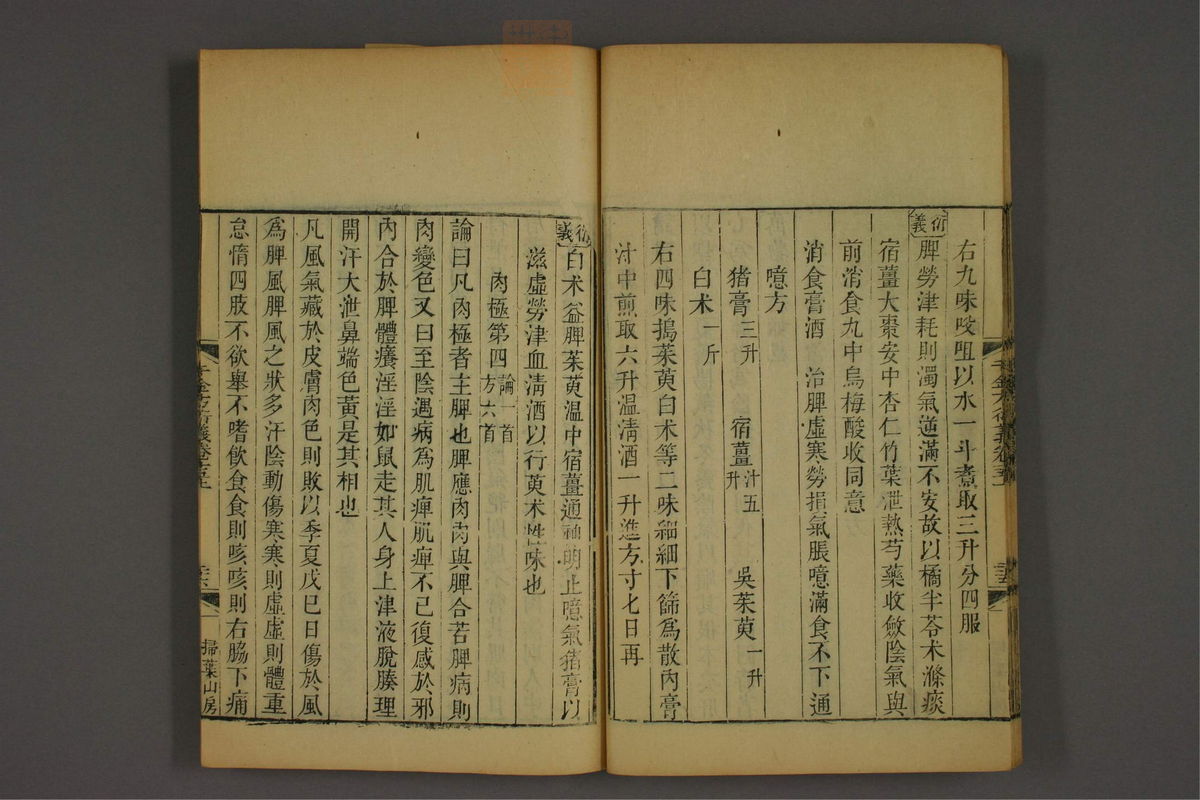 右九味㕮咀以水一斗煮取三升分四服
衍義
脾勞津耗則濁氣逆滿不安故以橘半苓术滌痰
宿薑大棗安中杏仁竹葉泄熱芍藥收斂陰氣與
前消食丸中烏梅酸收同意
消食膏酒 治脾虛寒勞損氣脹噫滿食不下通
噫方
猪膏三升 宿薑汁五升 吳茱萸一升
白术一斤
右四味搗茱萸白术等二味細細下篩為散內膏
汁中煎取六升温清酒一升進方寸七日再
衍義
白术益脾茱萸温中宿薑通神明止噫氣猪膏以
滋虛勞津血清酒以行萸术性味也
肉極第四論一首方六首
論曰凡肉極者主脾也脾應肉肉與脾合若脾病則
肉變色又曰至陰遇病為肌痺肌痺不已復感於邪
內合於脾體癢淫淫如鼠走其人身上津液脫腠理
開汗大泄鼻端色黃是其相也
凡風氣藏於皮膚肉色則敗以季夏戊巳日傷於風
為脾風脾風之狀多汗陰動傷寒寒則虛虛則體重
怠惰四肢不欲舉不嗜飲食食則咳咳則右脇下痛
掃葉山房